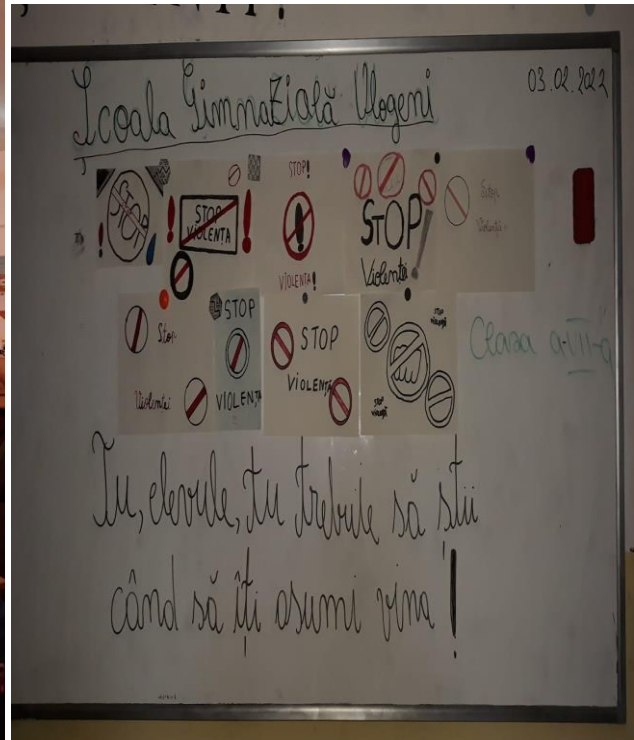 Școala Gimnazială Vlogeni
03.02.2022
STOP
STOP
VIOLENȚA
STOP!
VIOLENȚA!
STOP
Violenței
Stop
Violenței
Stop
Violenței
STOP
VIOLENȚA
STOP
VIOLENȚA
STOP
STOP
Clasa a-VII-a
Tu, elevule, tu trebuie să știi
când să îți asumi vina!